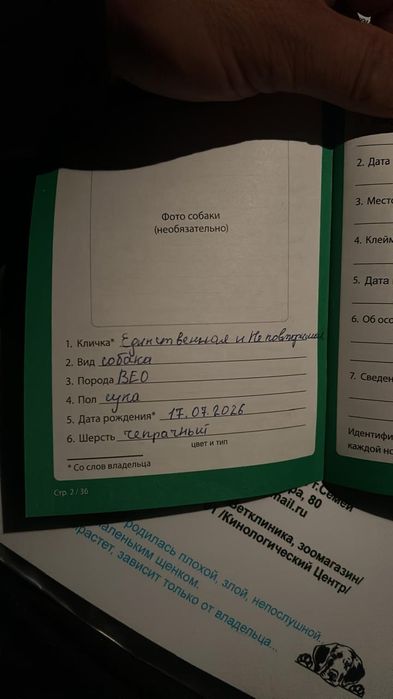 Фото собаки
(необязательно)
1. Кличка* Единственная и Неповторимая
2. Вид собака
3. Порода ВЕО
4. Пол сука
5. Дата рождения* 17.07.2026
6. Шерсть чепрачный
цвет и тип
* Со слов владельца
Стр. 2 / 36
2. Дата
3. Место
4. Клейм
5. Дата
6. Об осо
7. Сведен
Идентифи
каждой но
г.Семей
80
mail.ru
ветклиника, зоомагазин/
/Кинологический Центр/
родилась плохой, злой, непослушной.
маленьким щенком.
растет, зависит только от владельца...